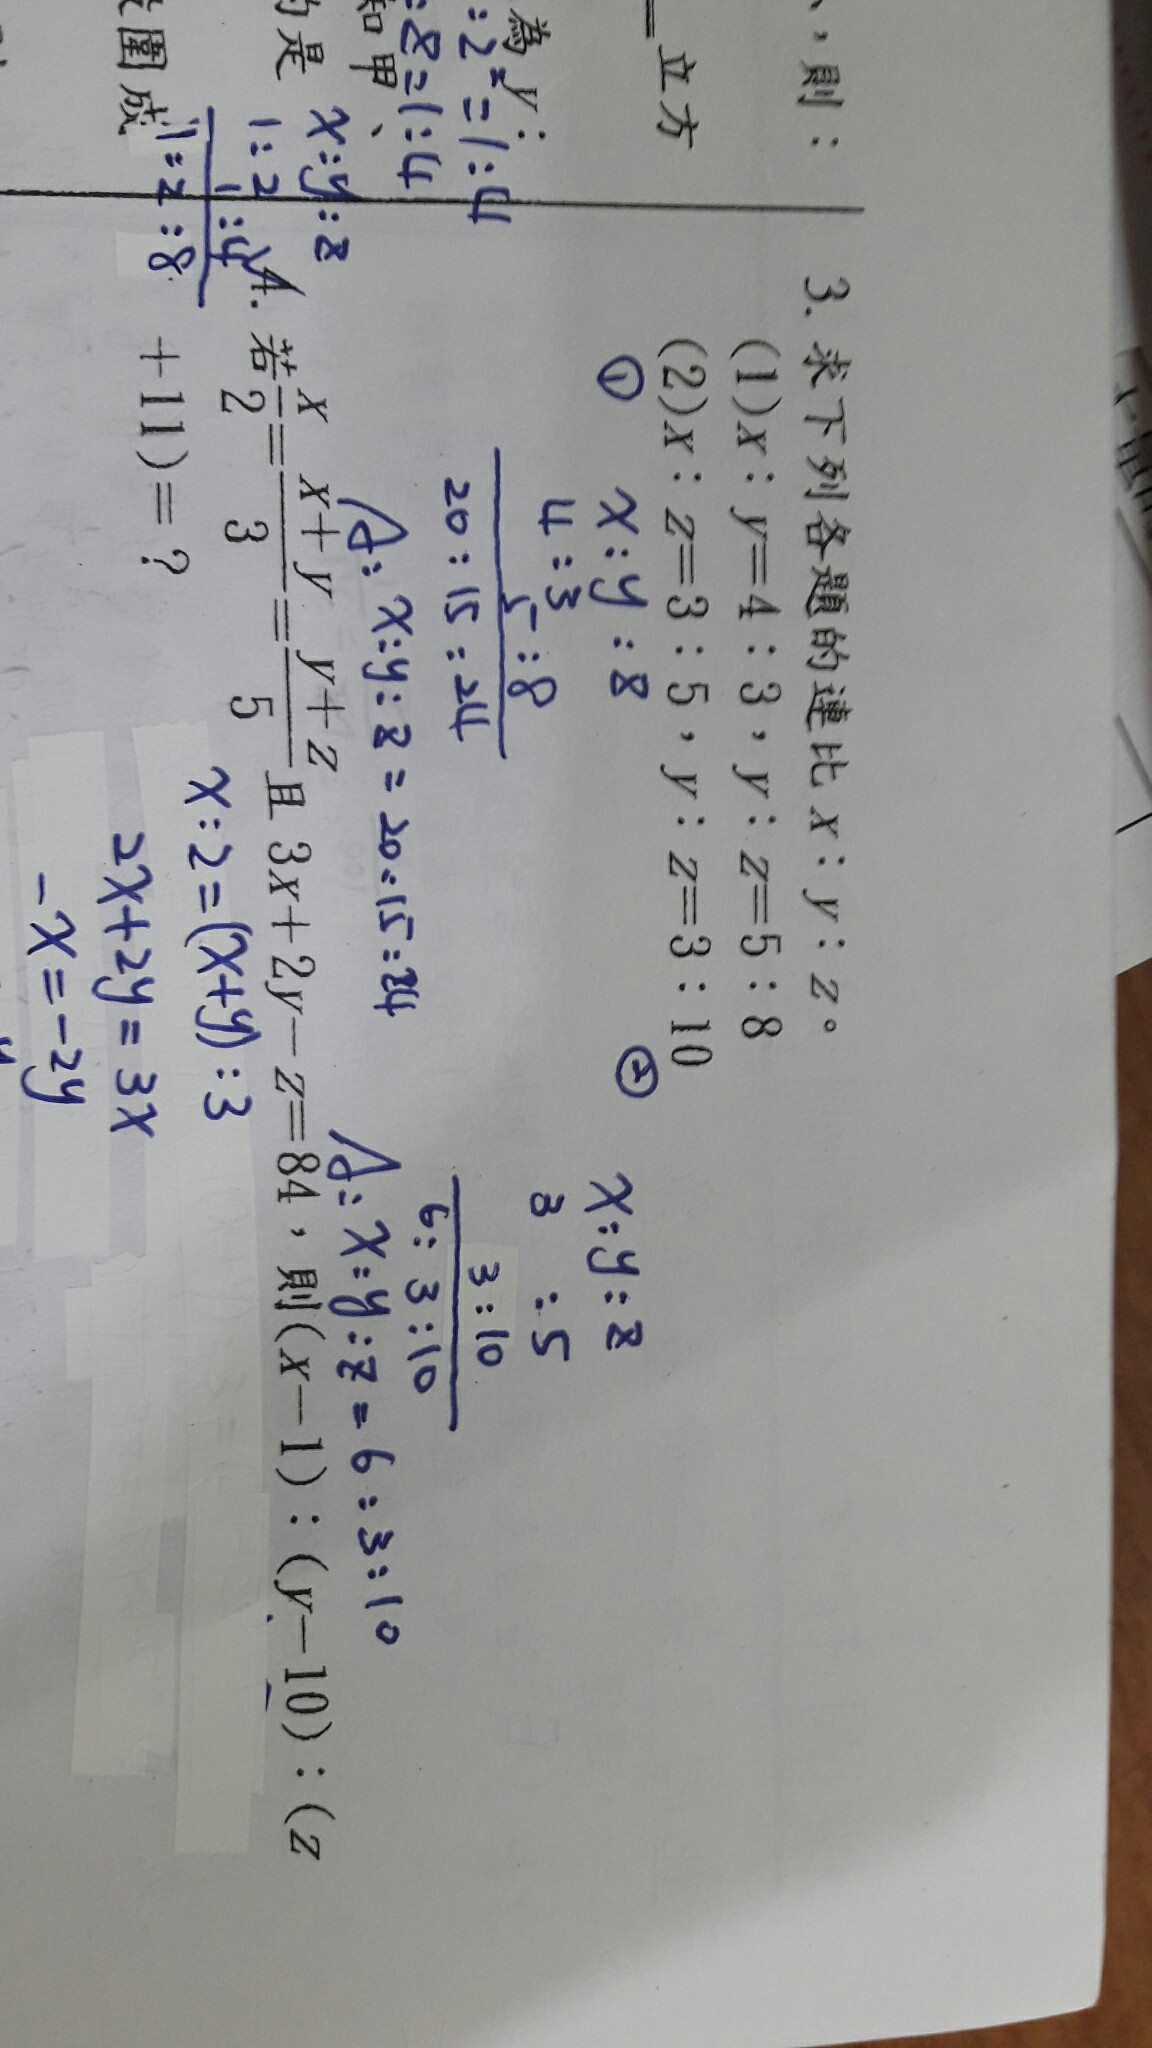 、，則：
立方
為 y：
:2=1:4
:8=1:4
和甲、
的是
x:y:z
1:2
1:4
1:2:8
圍成
3. 求下列各題的連比 x：y：z。
(1)x：y=4：3，y：z=5：8
(2)x：z=3：5，y：z=3：10
①
x:y:z
4:3
5:8
20:15:24
A: x:y:z=20:15:24
②
x:y:z
3 :5
3:10
6:3:10
A: x:y:z=6:3:10
4. 若 x/2 = x+y/3 = y+z/5 且 3x+2y-z=84，則(x-1)：(y-10)：(z
+11)=？
x:2=(x+y):3
2x+2y=3x
-x=-2y